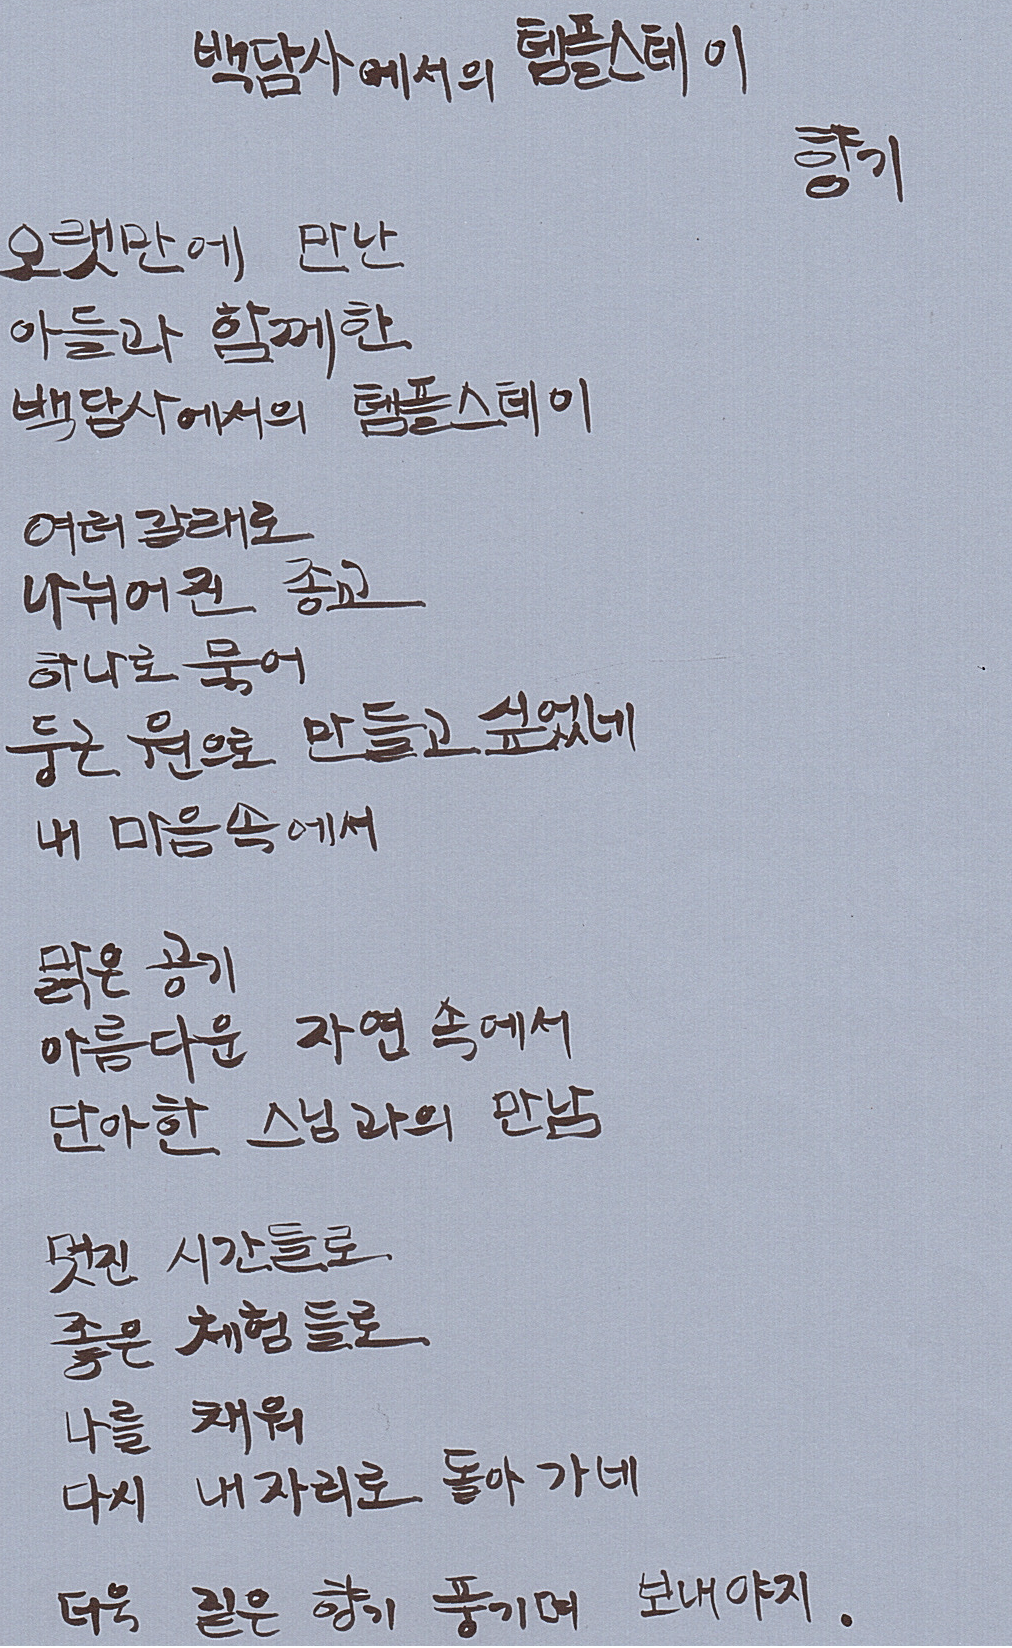 백담사에서의 템플스테이
향기
오랫만에 만난
아들과 함께한
백담사에서의 템플스테이
여러갈래로
나뉘어진 종교
하나로 묶어
둥근 원으로 만들고 싶었네
내 마음속에서
맑은 공기
아름다운 자연 속에서
단아한 스님과의 만남
멋진 시간들로
좋은 체험들로
나를 채워
다시 내자리로 돌아가네
더욱 짙은 향기 풍기며 보내야지.